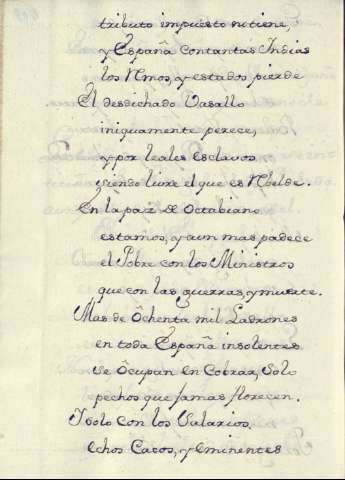 tributo impuesto no tiene,
y España con tantas Indias
los Rnos, y estados pierde
El desdichado Vasallo
iniquamente perece,
y por leales esclavos,
siendo livre el que es Rebelde.
En la paz de Octabiano
estamos, y aun mas padece
el Pobre con los Ministros
que con las guerras, y muerte.
Mas de Ôchenta mil Ladrones
en toda España insolentes
se Ôcupan en Cobrar, solo
pechos que jamas florecen.
I solo con los Salarios,
echos Cacos, y eminentes